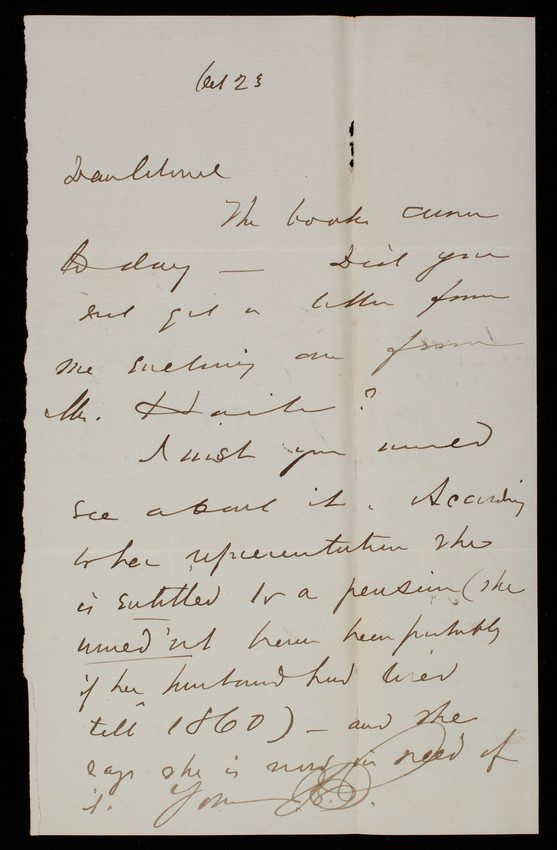 Oct 23
Dear Colonel
The books came
to day — Did you
not get a letter from
me enclosing one from
Mr.
I wish you would
see about it. According
to her representation she
is entitled to a pension (she
would'nt have been probably
if her husband had lived
till 1860) — and she
says she is now in need of
it. Yours